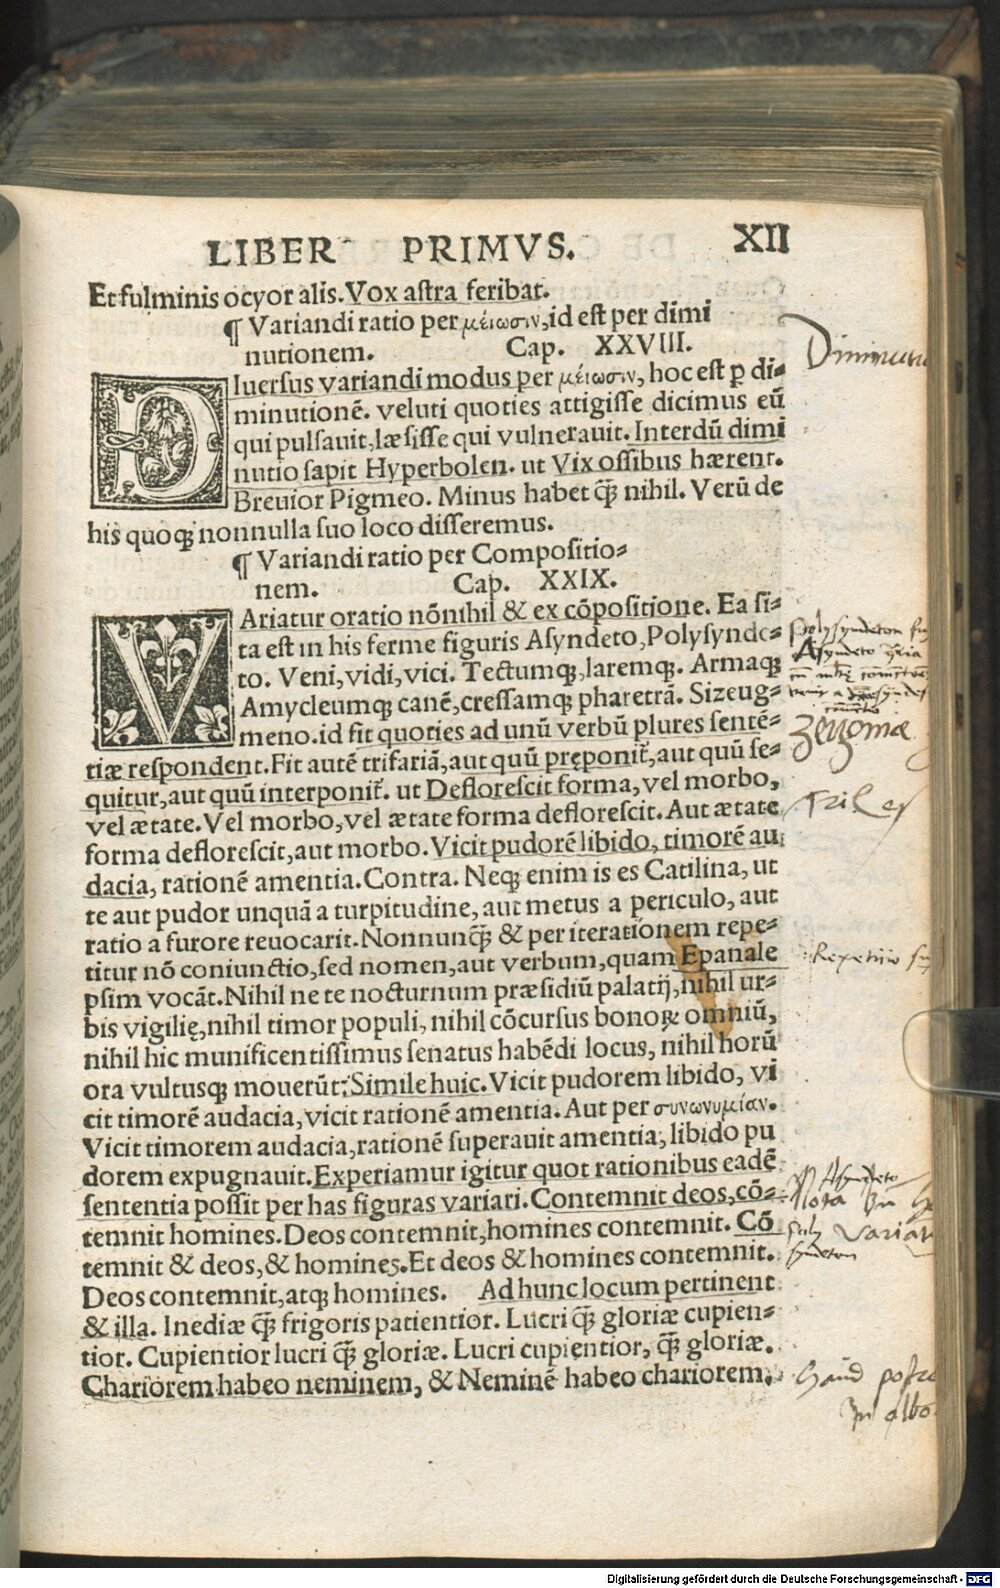 LIBER PRIMVS. XII
Et fulminis ocyor alis. Vox astra feribat.
¶ Variandi ratio per μείωσιν, id est per dimi
nutionem. Cap. XXVIII.
DIuersus variandi modus per μείωσιν, hoc est ꝑ di-
minutionē. veluti quoties attigisse dicimus eū
qui pulsauit, læsisse qui vulnerauit. Interdū dimi
nutio sapit Hyperbolen. ut Vix ossibus hærent.
Breuior Pigmeo. Minus habet q̄ꝫ nihil. Verū de
his quoqꝫ nonnulla suo loco disseremus.
¶ Variandi ratio per Compositio-
nem. Cap. XXIX.
VAriatur oratio nōnihil & ex cōpositione. Ea si-
ta est in his ferme figuris Asyndeto, Polysynde-
to. Veni, vidi, vici. Tectumqꝫ, laremqꝫ. Armaqꝫ
Amycleumqꝫ canē, cressamqꝫ pharetrā. Sizeug-
meno. id fit quoties ad unū verbū plures sentē-
tiæ respondent. Fit autē trifariā, aut quū pręponit᷑, aut quū se-
quitur, aut quū interponit᷑. ut Deflorescit forma, vel morbo,
vel ætate. Vel morbo, vel ætate forma deflorescit. Aut ætate
forma deflorescit, aut morbo. Vicit pudorē libido, timorē au
dacia, rationē amentia. Contra. Neqꝫ enim is es Catilina, ut
te aut pudor unquā a turpitudine, aut metus a periculo, aut
ratio a furore reuocarit. Nonnunq̄ꝫ & per iterationem repe-
titur nō coniunctio, sed nomen, aut verbum, quam Epanale
psim vocāt. Nihil ne te nocturnum præsidiū palatij, nihil ur-
bis vigilię, nihil timor populi, nihil cōcursus bonoꝝ omniū,
nihil hic munificentissimus senatus habēdi locus, nihil horū
ora vultusqꝫ mouerūt: Simile huic. Vicit pudorem libido, vi
cit timorē audacia, vicit rationē amentia. Aut per συνωνυμίαν.
Vicit timorem audacia, rationē superauit amentia, libido pu
dorem expugnauit. Experiamur igitur quot rationibus eadē
sententia possit per has figuras variari. Contemnit deos, cō-
temnit homines. Deos contemnit, homines contemnit. Cō
temnit & deos, & homines. Et deos & homines contemnit.
Deos contemnit, atqꝫ homines. Ad hunc locum pertinent
& illa. Inediæ q̄ꝫ frigoris patientior. Lucri q̄ꝫ gloriæ cupien-
tior. Cupientior lucri q̄ꝫ gloriæ. Lucri cupientior, q̄ꝫ gloriæ.
Chariorem habeo neminem, & Neminē habeo chariorem.
Polysyndeton
Asyndeto
Zeugma
Repetitio
Asyndeto
Nota
Digitalisierung gefördert durch die Deutsche Forschungsgemeinschaft - DFG